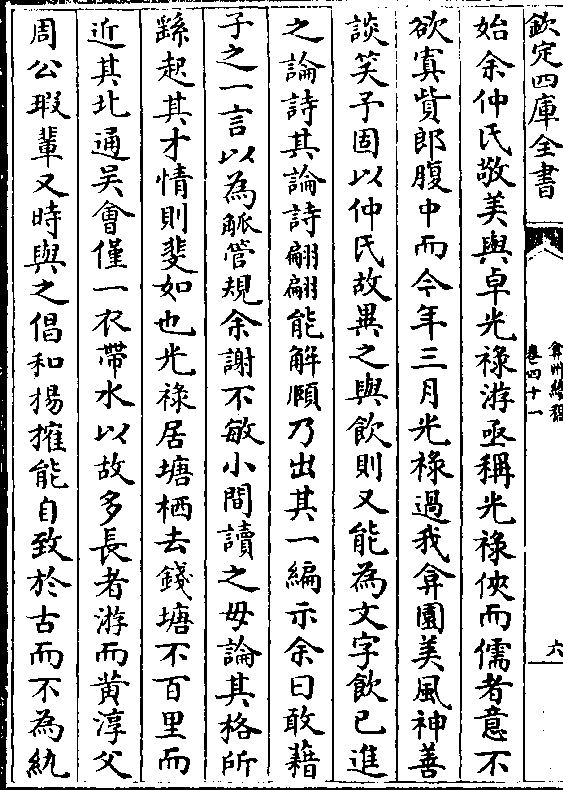 欽定四庫全書
弇州續稿
卷四十一
六
始余仲氏敬美與卓光祿游亟稱光祿俠而儒者意不
欲寘貲郎腹中而今年三月光祿過我弇園美風神善
談笑予固以仲氏故異之與飲則又能為文字飲已進
之論詩其論詩翩翩能解頤乃出其一編示余曰敢藉
子之一言以為觚管規余謝不敏小間讀之毋論其格所
繇起其才情則斐如也光祿居塘栖去錢塘不百里而
近其北通吳會僅一衣帶水以故多長者游而黄淳父
周公瑕輩又時與之倡和揚搉能自致於古而不為紈